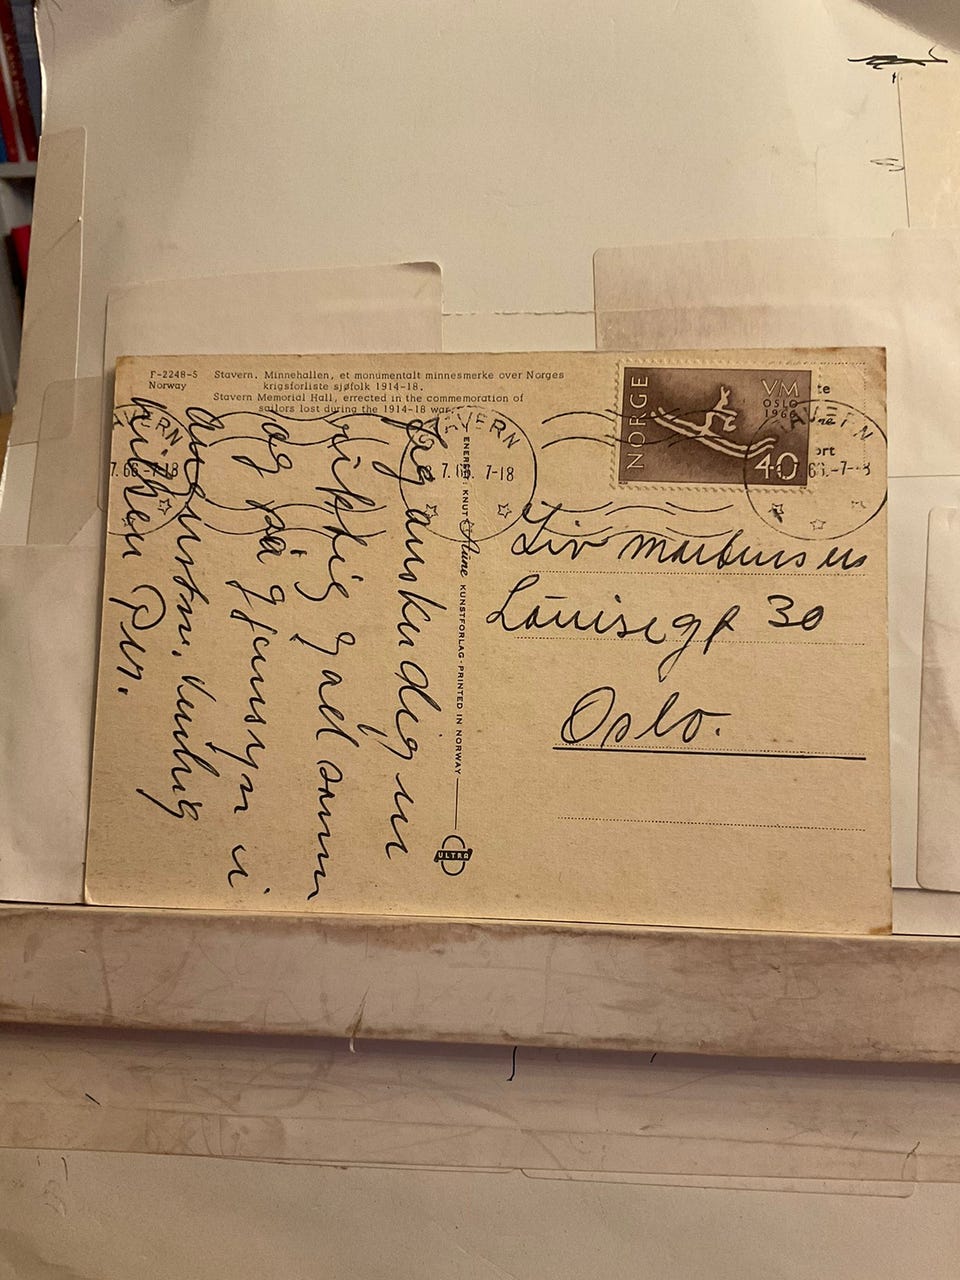 F-2248-S
Norway
Stavern. Minnehallen, et monumentalt minnesmerke over Norges
krigsforliste sjøfolk 1914-18.
Stavern Memorial Hall, errected in the commemoration of
sailors lost during the 1914-18 war.
Jeg ønsker dig en
riktig god som
og på gjensyn i
Vennlig
hilsen Per.
ENERETT: KNUT Aune KUNSTFORLAG · PRINTED IN NORWAY
ULTRA
NORGE
VM
OSLO
1966
40
te
ne
ort
AVERN
VERN
7.66. 7-18
RN
7.66-7-18
66.-7-
Liv
Louisegt 30
Oslo.